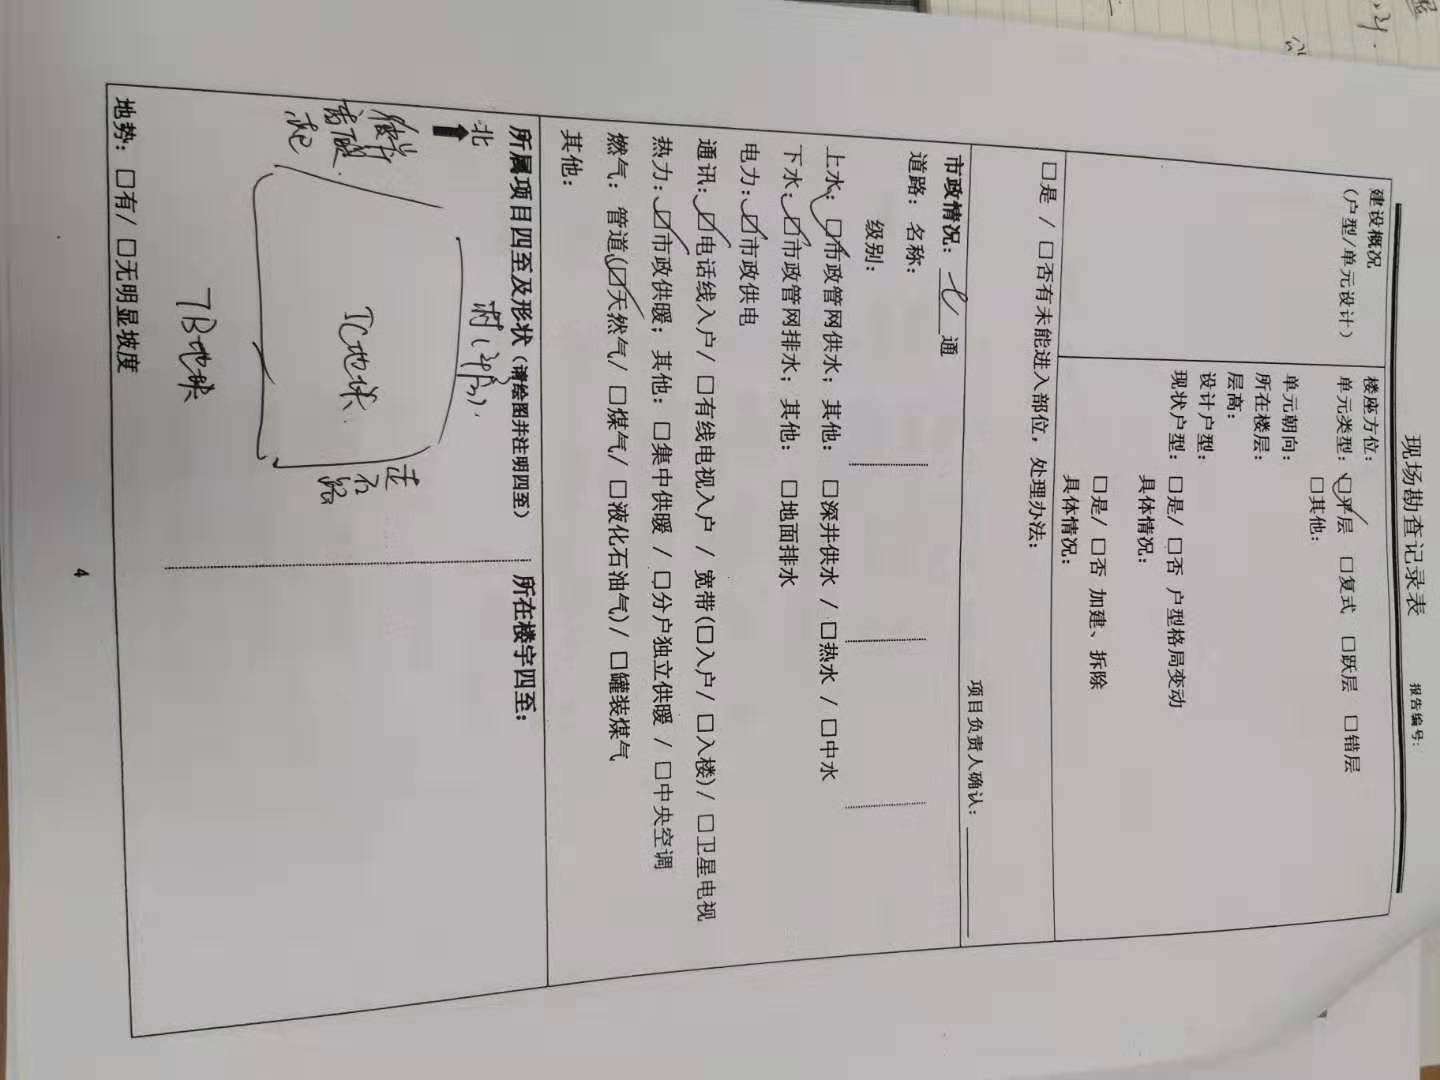 现场勘查记录表
报告编号:
建设概况
(户型/单元设计)
楼座方位:
单元类型: ☑平层 □复式 □跃层 □错层
□其他:
单元朝向:
所在楼层:
层高:
设计户型:
现状户型: □是/ □否 户型格局变动
具体情况:
□是/ □否 加建、拆除
具体情况:
□是 / □否有未能进入部位, 处理办法:
项目负责人确认:
市政情况: 七 通
道路: 名称:
级别:
上水: ☑市政管网供水; 其他: □深井供水 / □热水 / □中水
下水: ☑市政管网排水; 其他: □地面排水
电力: ☑市政供电
通讯: ☑电话线入户/ □有线电视入户 / 宽带(□入户/ □入楼)/ □卫星电视
热力: ☑市政供暖; 其他: □集中供暖 / □分户独立供暖 / □中央空调
燃气: 管道(☑天然气/ □煤气/ □液化石油气)/ □罐装煤气
其他:
所属项目四至及形状 (请绘图并注明四至)
所在楼宇四至:
北
7C地块
路
7B地块
地势: □有/ □无明显坡度
4